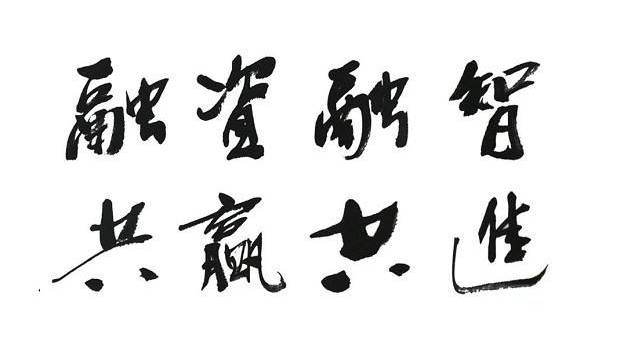 融資融智
共贏共進